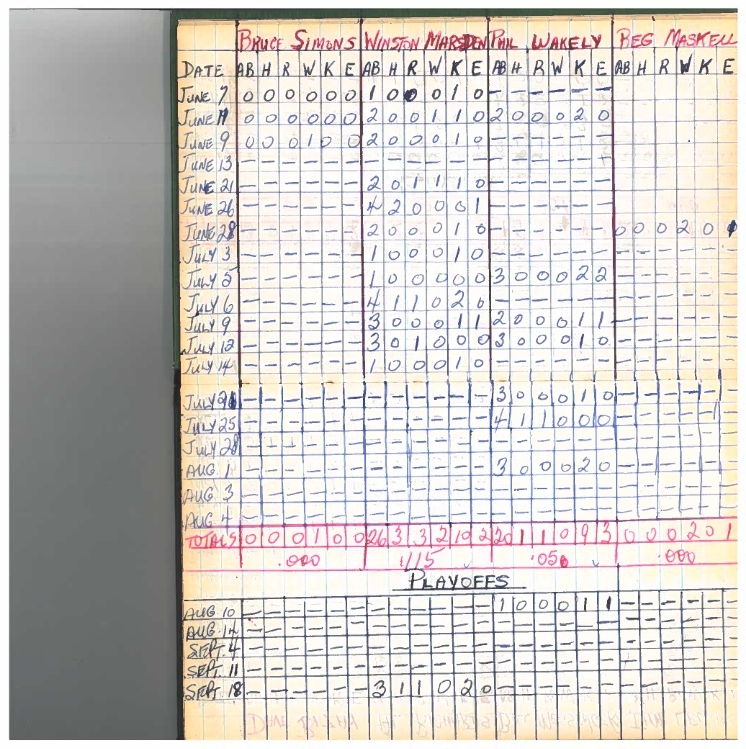 BRUCE SIMONS WINSTON MARSDEN PHIL WAKELY REG MASKELL
DATE AB H R W K E AB H R W K E AB H R W K E AB H R W K E
JUNE 7 0 0 0 0 0 0 1 0 0 0 1 0 - - - - - -
JUNE 0 0 0 0 0 0 2 0 0 1 1 0 2 0 0 0 2 0
JUNE 9 0 0 0 1 0 0 2 0 0 0 1 0 - - - - - -
JUNE 13 - - - - - - - - - - - - - - - - - -
JUNE 21 - - - - - - 2 0 1 1 1 0 - - - - - -
JUNE 26 - - - - - - 4 2 0 0 0 1 - - - - - -
JUNE 28 - - - - - - 2 0 0 0 1 0 - - - - - - 0 0 0 2 0 1
JULY 3 - - - - - - 1 0 0 0 1 0 - - - - - - - - - - - -
JULY 5 - - - - - - 1 0 0 0 0 0 3 0 0 0 2 2 - - - - - -
JULY 6 - - - - - - 4 1 1 0 2 0 - - - - - - - - - - - -
JULY 9 - - - - - - 3 0 0 0 1 1 2 0 0 0 1 1 - - - - - -
JULY 12 - - - - - - 3 0 1 0 0 0 3 0 0 0 1 0 - - - - - -
JULY 14 - - - - - - 1 0 0 0 1 0 - - - - - - - - - - - -
JULY - - - - - - - - - - - - 3 0 0 0 1 0 - - - - - -
JULY 25 - - - - - - - - - - - - 4 1 1 0 0 0 - - - - - -
JULY 28 - - - - - - - - - - - - - - - - - - - - - - - -
AUG 1 - - - - - - - - - - - - 3 0 0 0 2 0 - - - - - -
AUG 3 - - - - - - - - - - - - - - - - - - - - - - - -
AUG 4 - - - - - - - - - - - - - - - - - - - - - - - -
TOTALS 0 0 0 1 0 0 26 3 3 2 10 2 20 1 1 0 9 3 0 0 0 2 0 1
.000 .115 .050 .000
PLAYOFFS
AUG 10 - - - - - - - - - - - - 1 0 0 0 1 1 - - - - - -
AUG 14 - - - - - - - - - - - - - - - - - - - - - - - -
SEPT. 4 - - - - - - - - - - - - - - - - - - - - - - - -
SEPT. 11 - - - - - - - - - - - - - - - - - - - - - - - -
SEPT 18 - - - - - - 3 1 1 0 2 0 - - - - - - - - - - - -